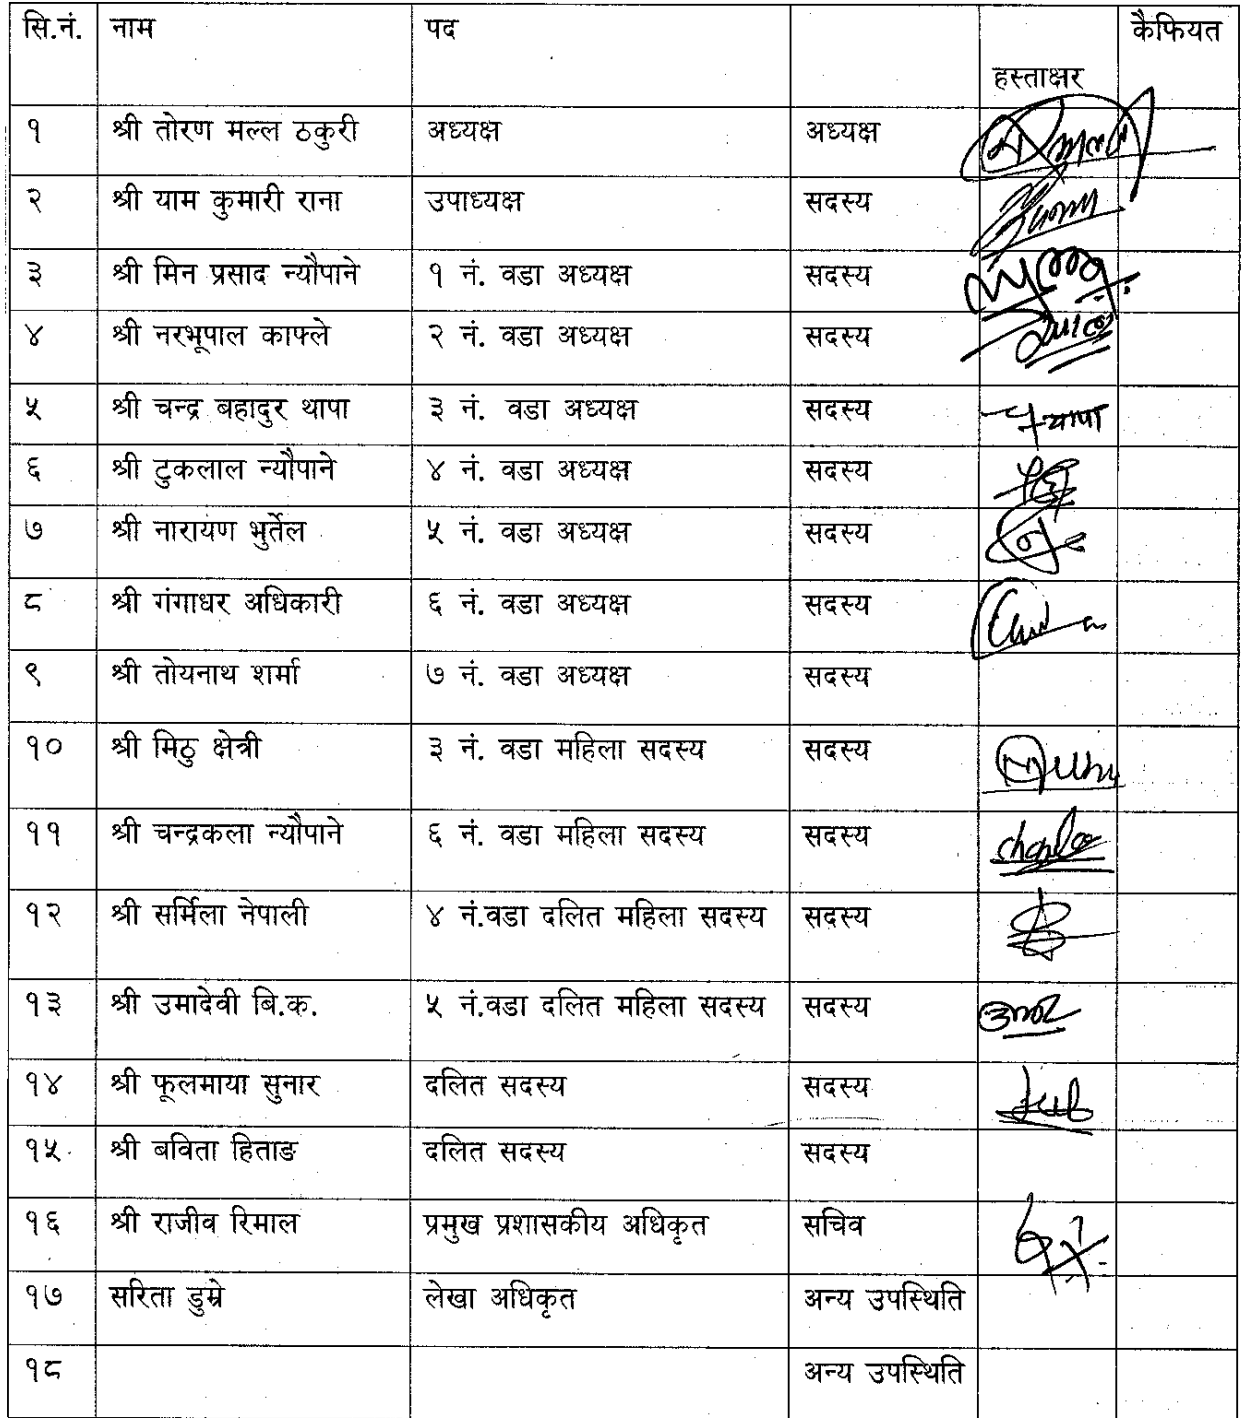 सि.नं. नाम पद हस्ताक्षर कैफियत
१ श्री तोरण मल्ल ठकुरी अध्यक्ष अध्यक्ष
२ श्री याम कुमारी राना उपाध्यक्ष सदस्य
३ श्री मिन प्रसाद न्यौपाने १ नं. वडा अध्यक्ष सदस्य
४ श्री नरभूपाल काफ्ले २ नं. वडा अध्यक्ष सदस्य
५ श्री चन्द्र बहादुर थापा ३ नं. वडा अध्यक्ष सदस्य
६ श्री टुकलाल न्यौपाने ४ नं. वडा अध्यक्ष सदस्य
७ श्री नारायण भुर्तेल ५ नं. वडा अध्यक्ष सदस्य
८ श्री गंगाधर अधिकारी ६ नं. वडा अध्यक्ष सदस्य
९ श्री तोयनाथ शर्मा ७ नं. वडा अध्यक्ष सदस्य
१० श्री मिठु क्षेत्री ३ नं. वडा महिला सदस्य सदस्य
११ श्री चन्द्रकला न्यौपाने ६ नं. वडा महिला सदस्य सदस्य
१२ श्री सर्मिला नेपाली ४ नं.वडा दलित महिला सदस्य सदस्य
१३ श्री उमादेवी बि.क. ५ नं.वडा दलित महिला सदस्य सदस्य
१४ श्री फूलमाया सुनार दलित सदस्य सदस्य
१५ श्री बविता हिताङ दलित सदस्य सदस्य
१६ श्री राजीव रिमाल प्रमुख प्रशासकीय अधिकृत सचिव
१७ सरिता डुम्रे लेखा अधिकृत अन्य उपस्थिति
१८ अन्य उपस्थिति